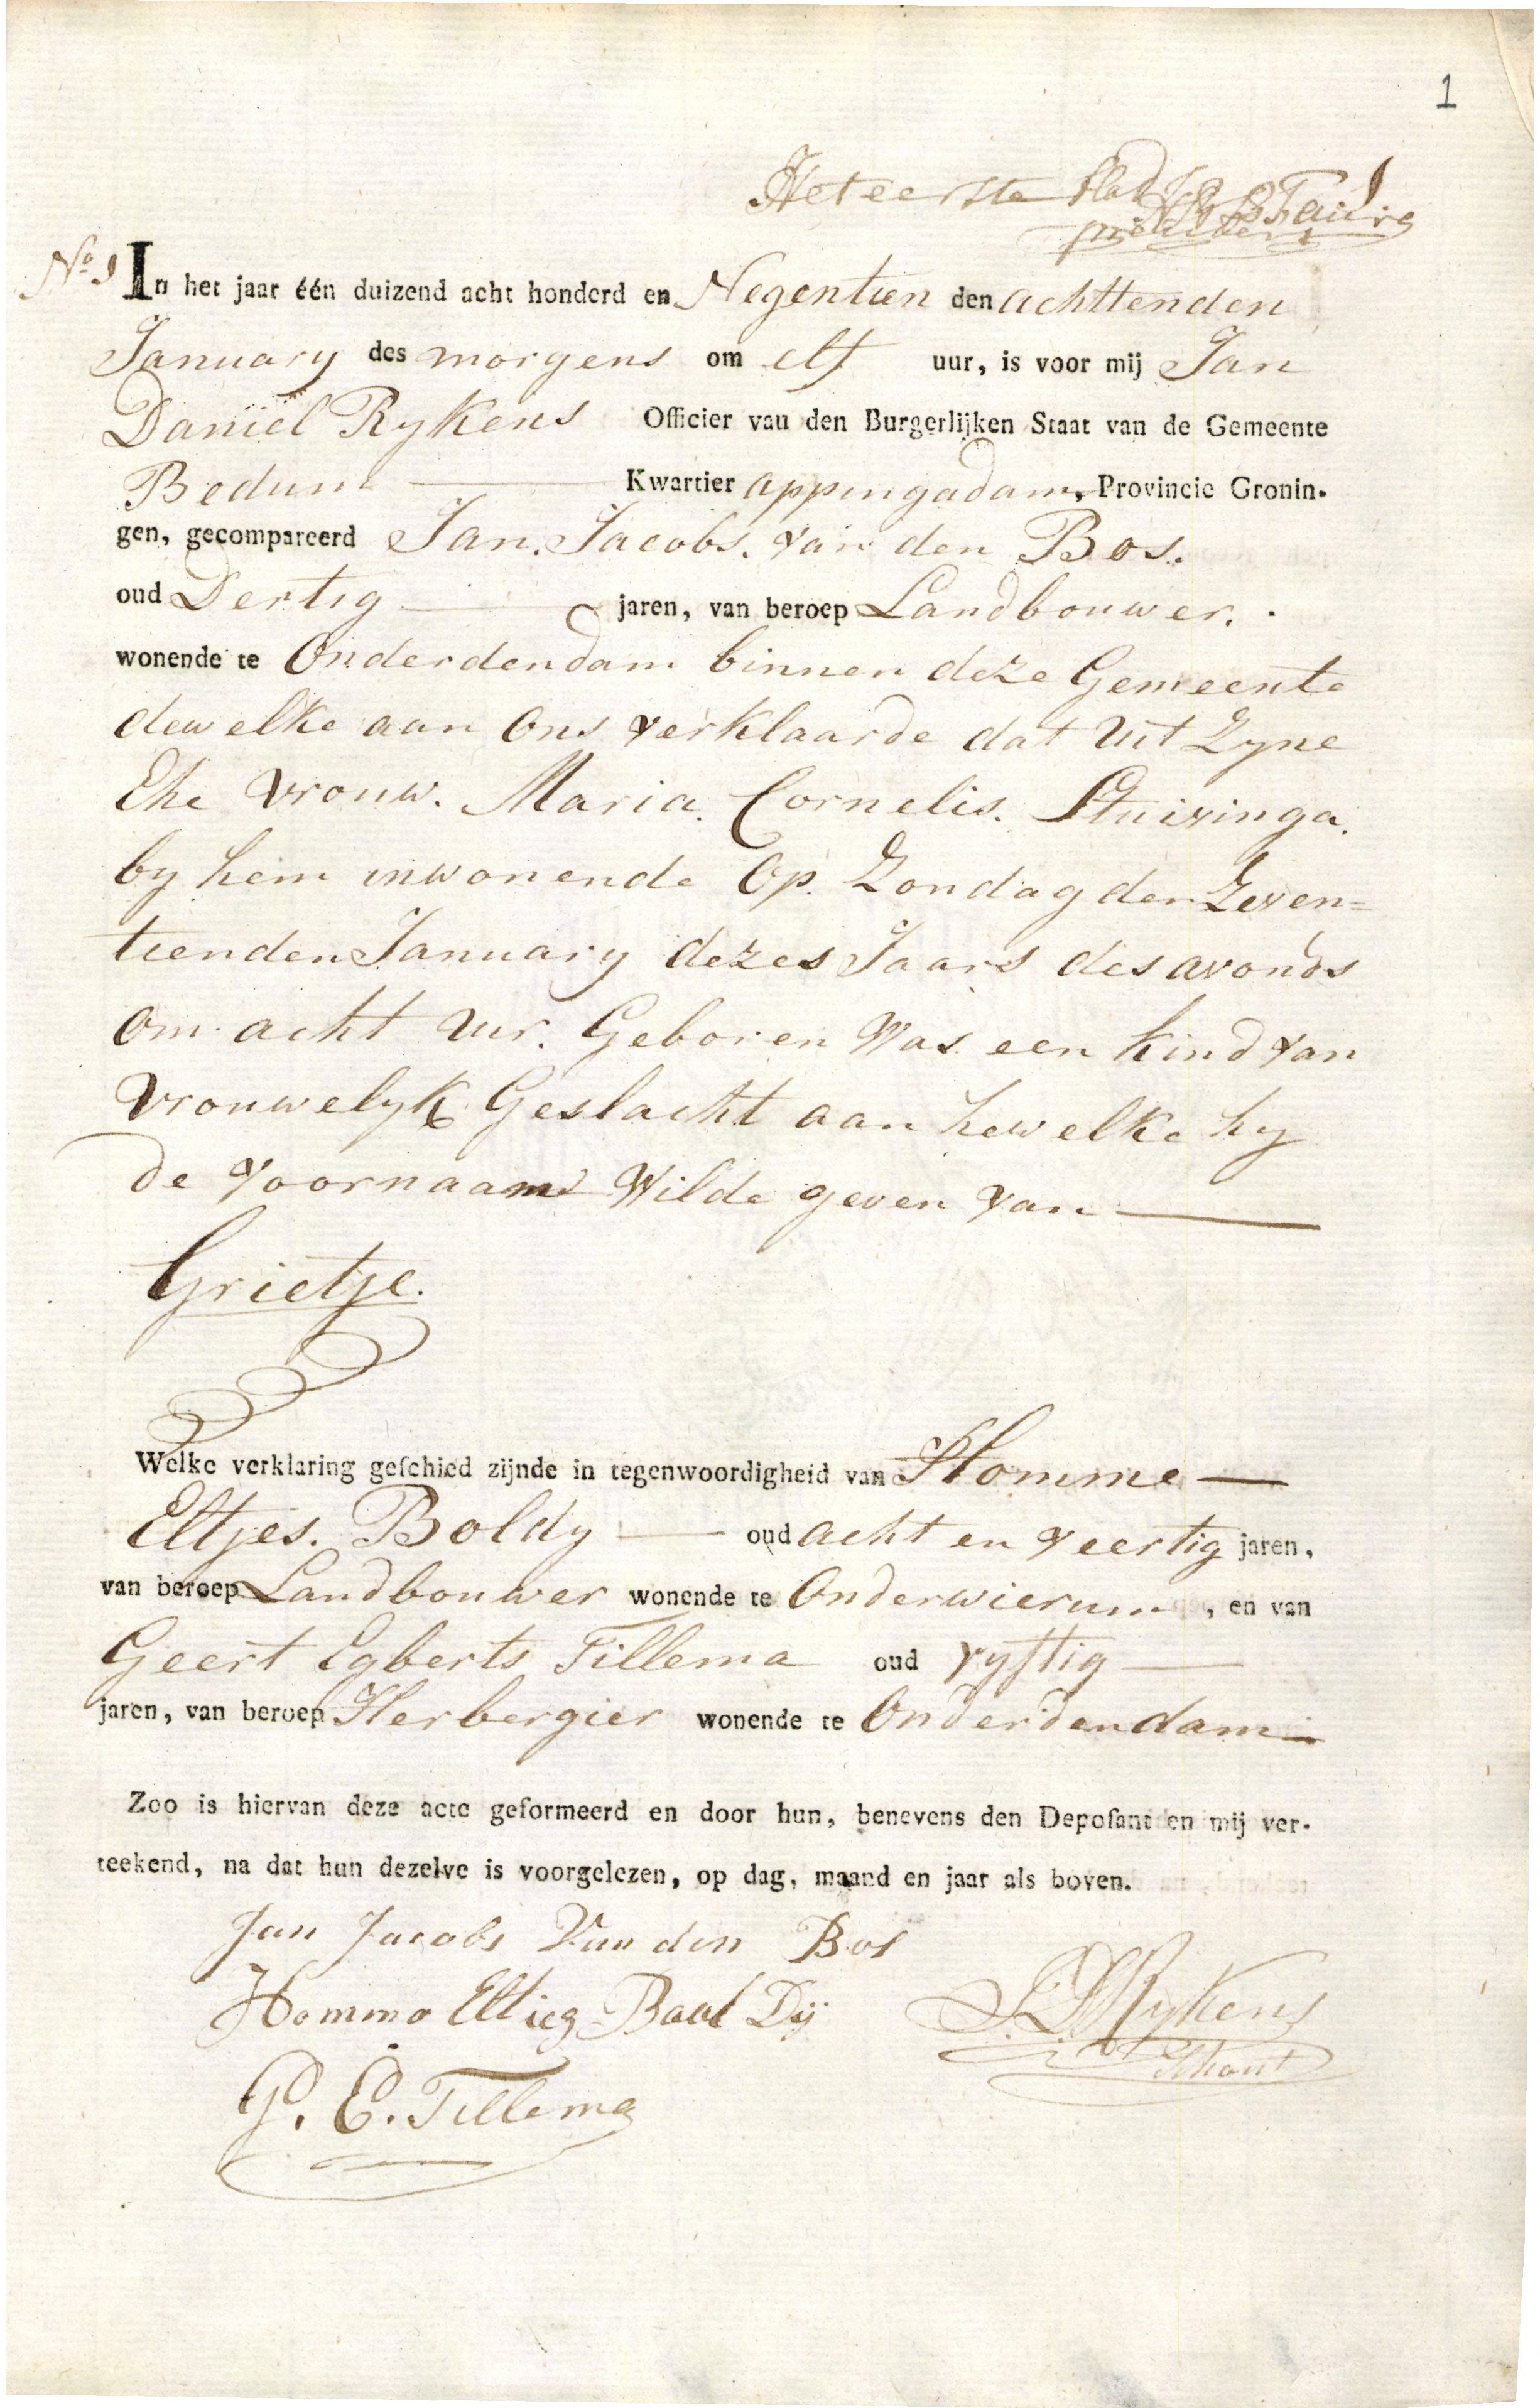 1
Het eerste blad
No 1 In het jaar één duizend acht honderd en Negentien den achttenden
January des morgens om elf uur, is voor mij Jan
Daniel Rykens Officier van den Burgerlijken Staat van de Gemeente
Bedum Kwartier appingadam, Provincie Gronin-
gen, gecompareerd Jan. Jacobs. van den Bos.
oud Dertig jaren, van beroep Landbouwer.
wonende te Onderdendam binnen deze Gemeente
dewelke aan Ons verklaarde dat uit Zyne
Ehe vrouw. Maria. Cornelis. Stuivinga.
by hem inwonende Op. Zondag den Zeven=
tienden January dezes Jaars des avonds
om acht uur. Geboren Was een kind van
vrouwelyk Geslacht aan hewelke hy
de voornaam Wilde geven van
Grietje.
Welke verklaring geschied zijnde in tegenwoordigheid van Homme
Eltjes. Boldy oud acht en veertig jaren,
van beroep Landbouwer wonende te Onderwierum, en van
Geert Egberts Tillema oud vyftig
jaren, van beroep Herbergier wonende te Onderdendam
Zoo is hiervan deze acte geformeerd en door hun, benevens den Deposant en mij ver-
teekend, na dat hun dezelve is voorgelezen, op dag, maand en jaar als boven.
Jan Jacobs Van den Bos
Hommo Elties Baal Dij J. D. Rykens
Schout
G. E. Tillema